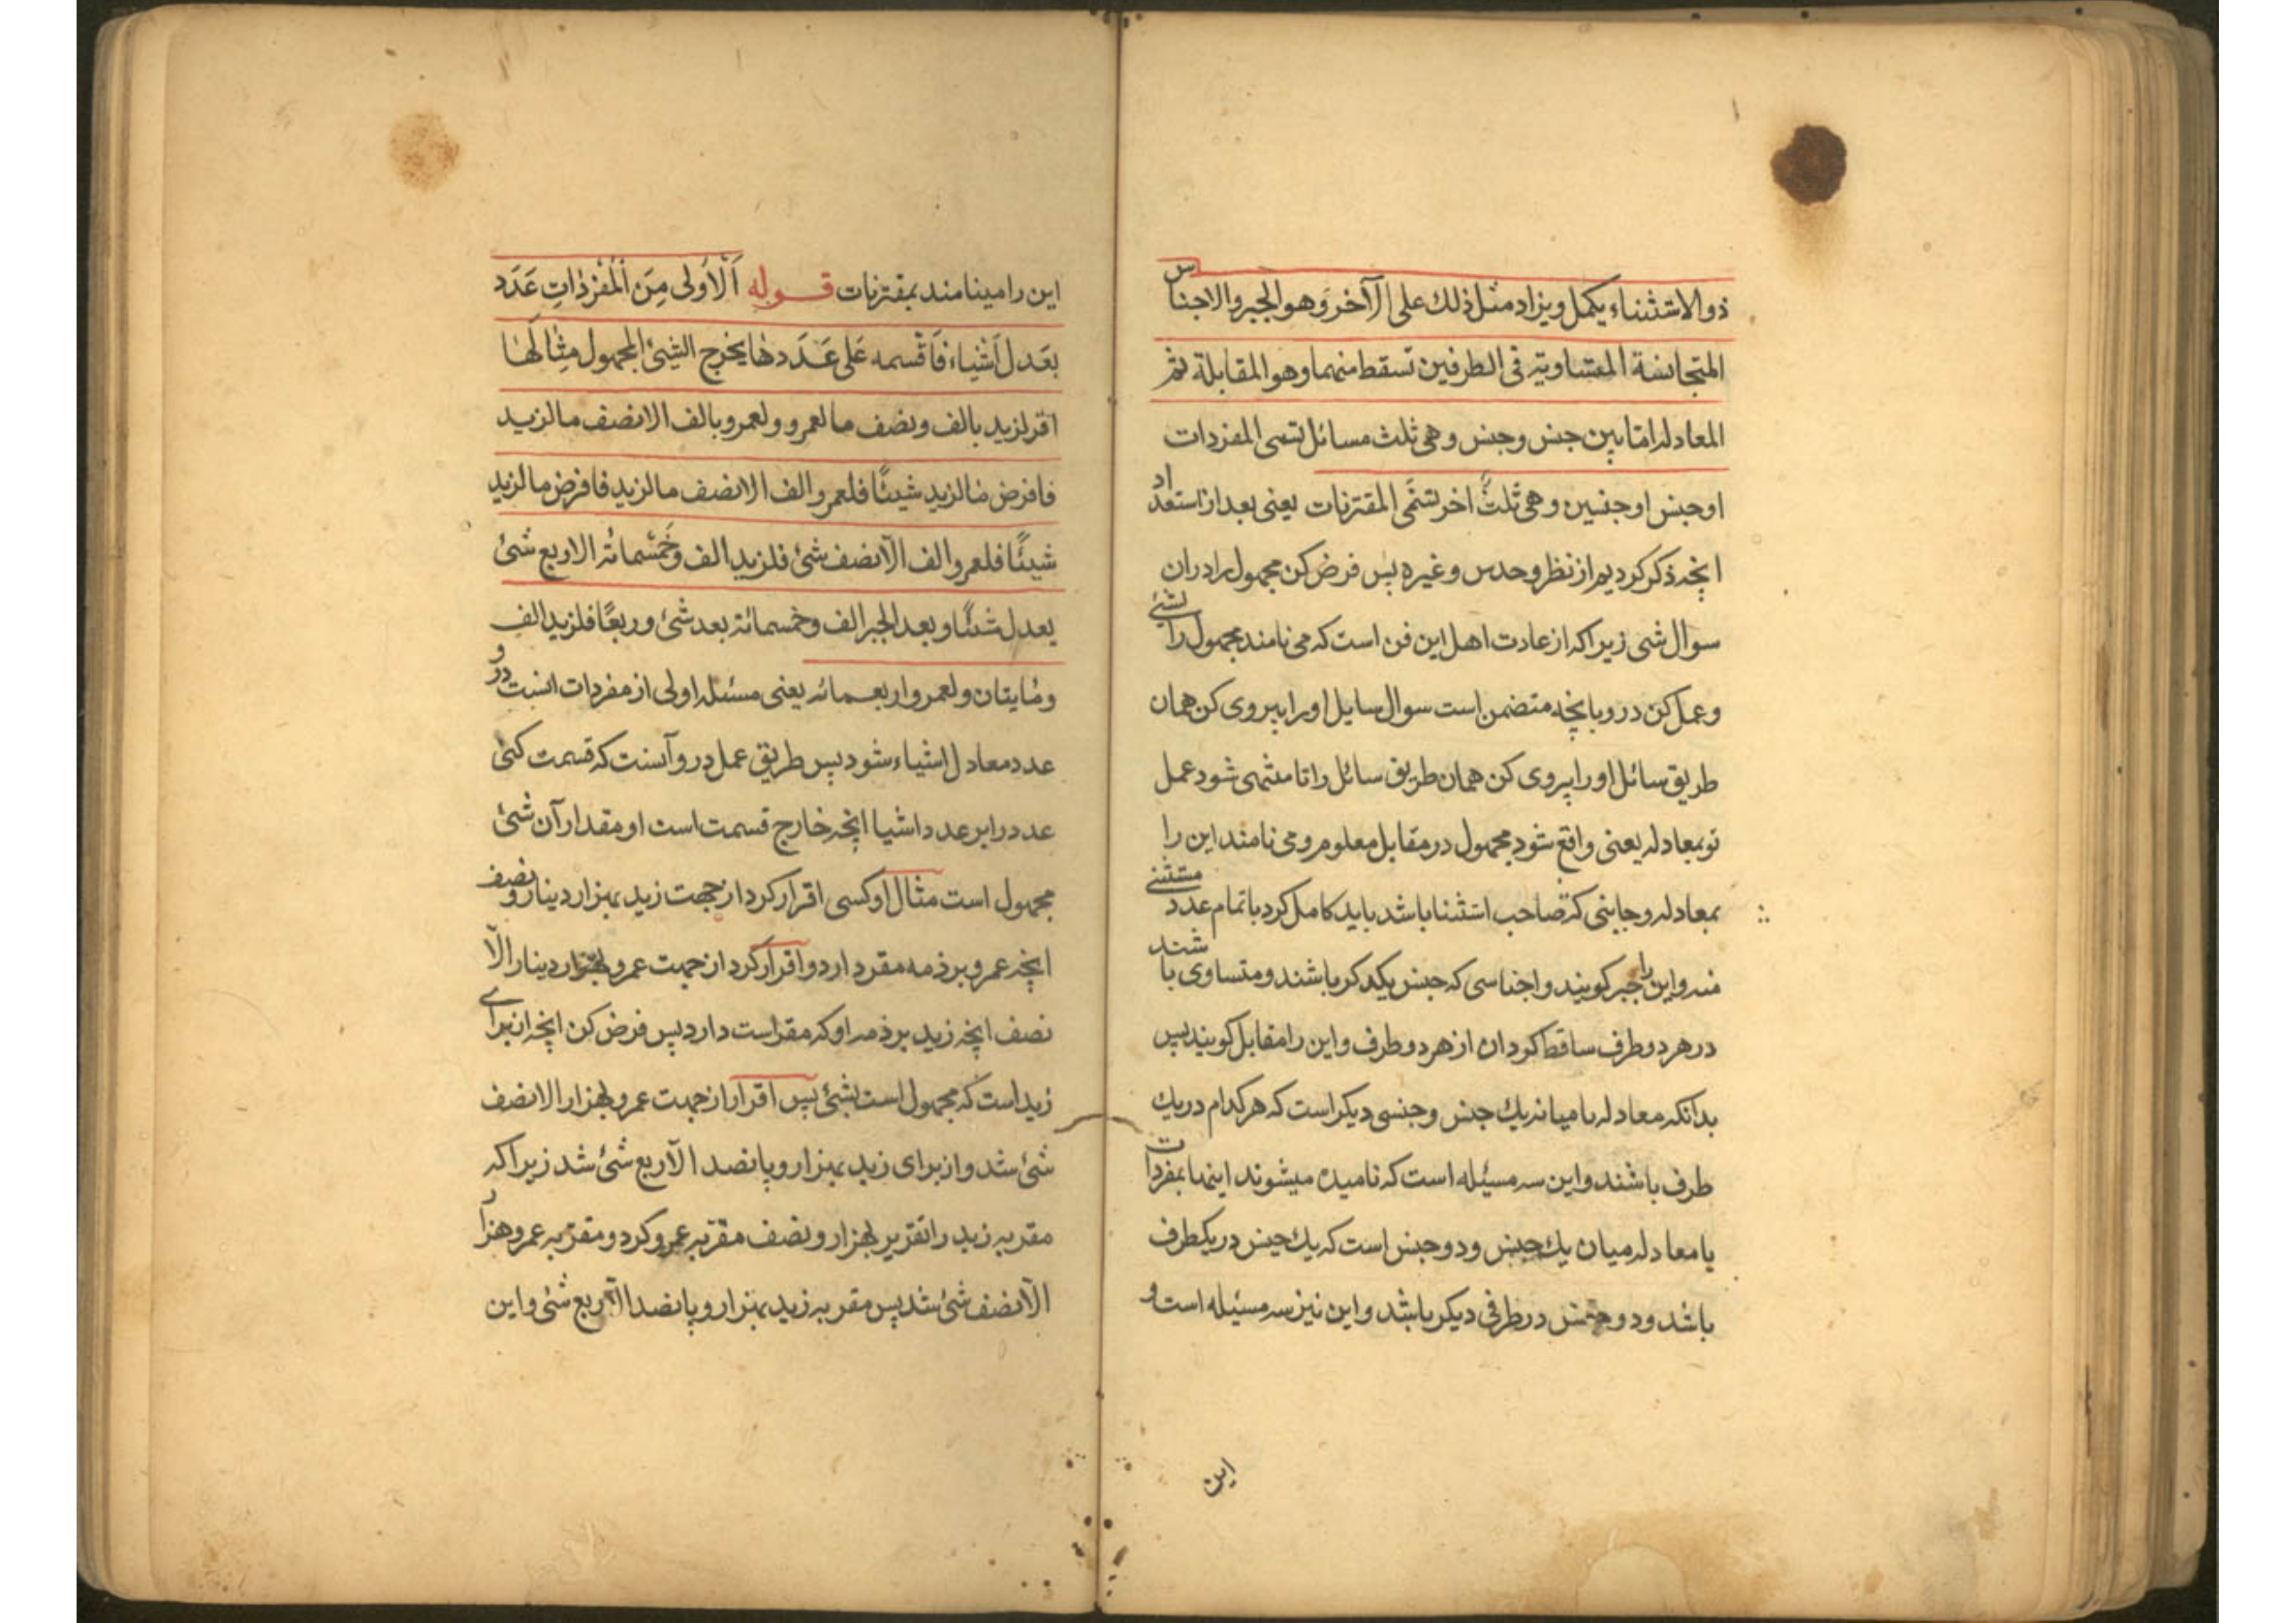 ذو الاستثناء یکمل ویزاد مثل ذلك علی الآخر وهو الجبر والاجناس
المتجانسة المتساویة فی الطرفین تسقط منهما وهو المقابلة ثم
المعادله امّا بین جنس وجنس وهی ثلث مسائل تسمی المفردات
او جنس او جنسین وهی ثلثٌ اخر تسَمّی المقترنات یعنی بعد از استعداد
انچه ذکر کردیم از نظر وحدس وغیره پس فرض کن مجهول را در ان
سوال شی زیرا که از عادت اهل این فن است که می نامند مجهول را بشیئ
وعمل کن در و بانچه متضمن است سوال سایل او را پیروی کن همان
طریق سائل او را پیروی کن همان طریق سائل را تا منتهی شود عمل
تو بمعادله یعنی واقع شود مجهول در مقابل معلوم و می نامند این را
بمعادله و جانبی که صاحب استثنا باشد باید کامل کرد با تمام عدد مستثنی
منه و این را جبر کویند و اجناسی که جنس یکدکر باشند و متساوی باشند
در هر دو طرف ساقط کردان از هر دو طرف و این را مقابل کویند پس
بدانکه معادله یا میانه یك جنس وجنسی دیکر است که هر کدام در یك
طرف باشند و این سه مسیٔله است که نامیده میشوند اینها بمفردات
یا معادله میان یك جنس ودو جنس است که یك جنس در یکطرف
باشد ودو جنس در طرفی دیکر باشد و این نیز سه مسیٔله است و
این
این را مینامند بمقترنات قوله اَلْاُولی مِنَ الْمُفْرَدٰاتِ عَدَد
یعَدل اَشْیٰاء فَاَقْسمه عَلی عَدَدهٰا یخرج الشیئ المجهول مِثٰالهٰا
اقر لزید بالف ونصف ما لعمرو ولعمرو بالف الا نصف ما لزید
فافرض مٰا لزید شیئًا فلعمرو الف الا نصف ما لزید فافرض ما لزید
شیئًا فلعمرو الف الّا نصف شیئ فلزید الف وخَمْسمائة الا ربع شئ
یعدل شیئًا وبعد الجبر الف وخمسمائة یعد شئ وربعًا فلزید الف
ومٰایتان ولعمرو اربعمائه یعنی مسئله اولی از مفردات انست و در
عدد معادل اشیاء شود پس طریق عمل در و آنست که قسمت کنی
عدد را بر عدد اشیا انچه خارج قسمت است او مقدار آن شیئ
مجهول است مثال او کسی اقرار کرد از جهت زید بهزار دینار و نصف
انچه عمرو بر ذمه مقر دارد و اقرار کرد از جهت عمرو بهزار دینار الّا
نصف انچه زید بر ذمه او که مقر است دارد پس فرض کن انچه از برای
زید است که مجهول است بشیئ پس اقرار از جهت عمرو بهزار الا نصف
شئ شد و از برای زید بهزار و پانصد الّا ربع شئ شد زیرا که
مقر به زید را تقریر بهزار و نصف مقر به عمرو کرد و مقر به عمرو هزار
الّا نصف شئ شد پس مقر به زید بهزار و پانصد الّا ربع شئ و این